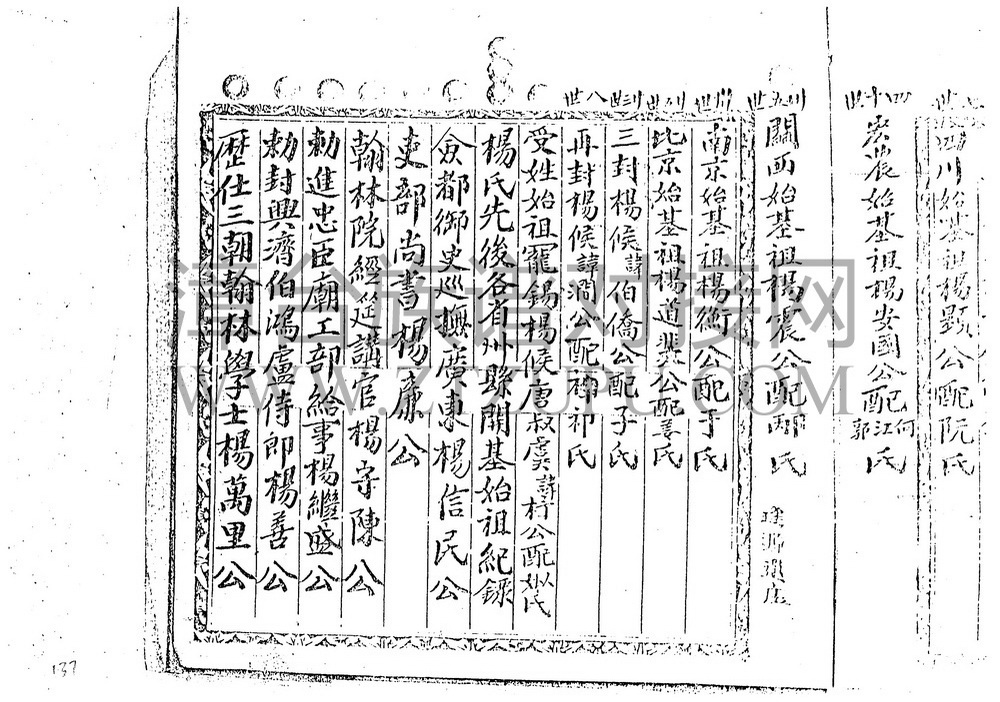 歷仕三朝翰林學士楊萬里公
勅封興濟伯鴻盧侍郎楊善公
勅進忠臣廟工部給事楊繼盛公
翰林院經筵講官楊守陳公
吏部尚書楊廉公
僉都御史巡撫廣東楊信民公
楊氏先後各省州縣開基始祖紀錄
受姓始祖寵錫楊候唐叔虞諱杼公配姒氏
八世
再封楊候諱澗公配祁氏
三封楊候諱伯僑公配子氏
北京始基祖楊道裴公配姜氏
南京始基祖楊衡公配于氏
卅五世
關西始基祖楊震公配邴氏
四十八世
宏農始基祖楊安國公配何江郭氏
四川始基祖楊顯公配阮氏
族谱对接网
137